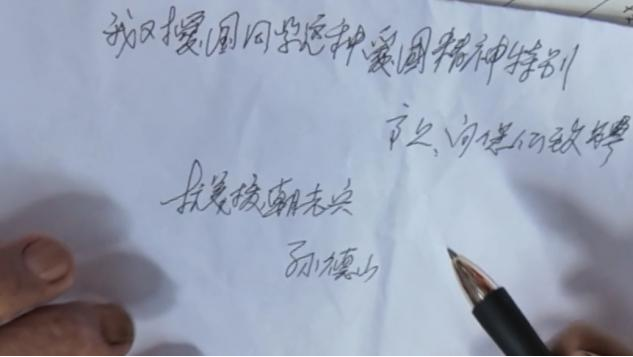 我对援国同学这种爱國精神特别
高兴,向你们致
抗美援朝老兵
孙德山